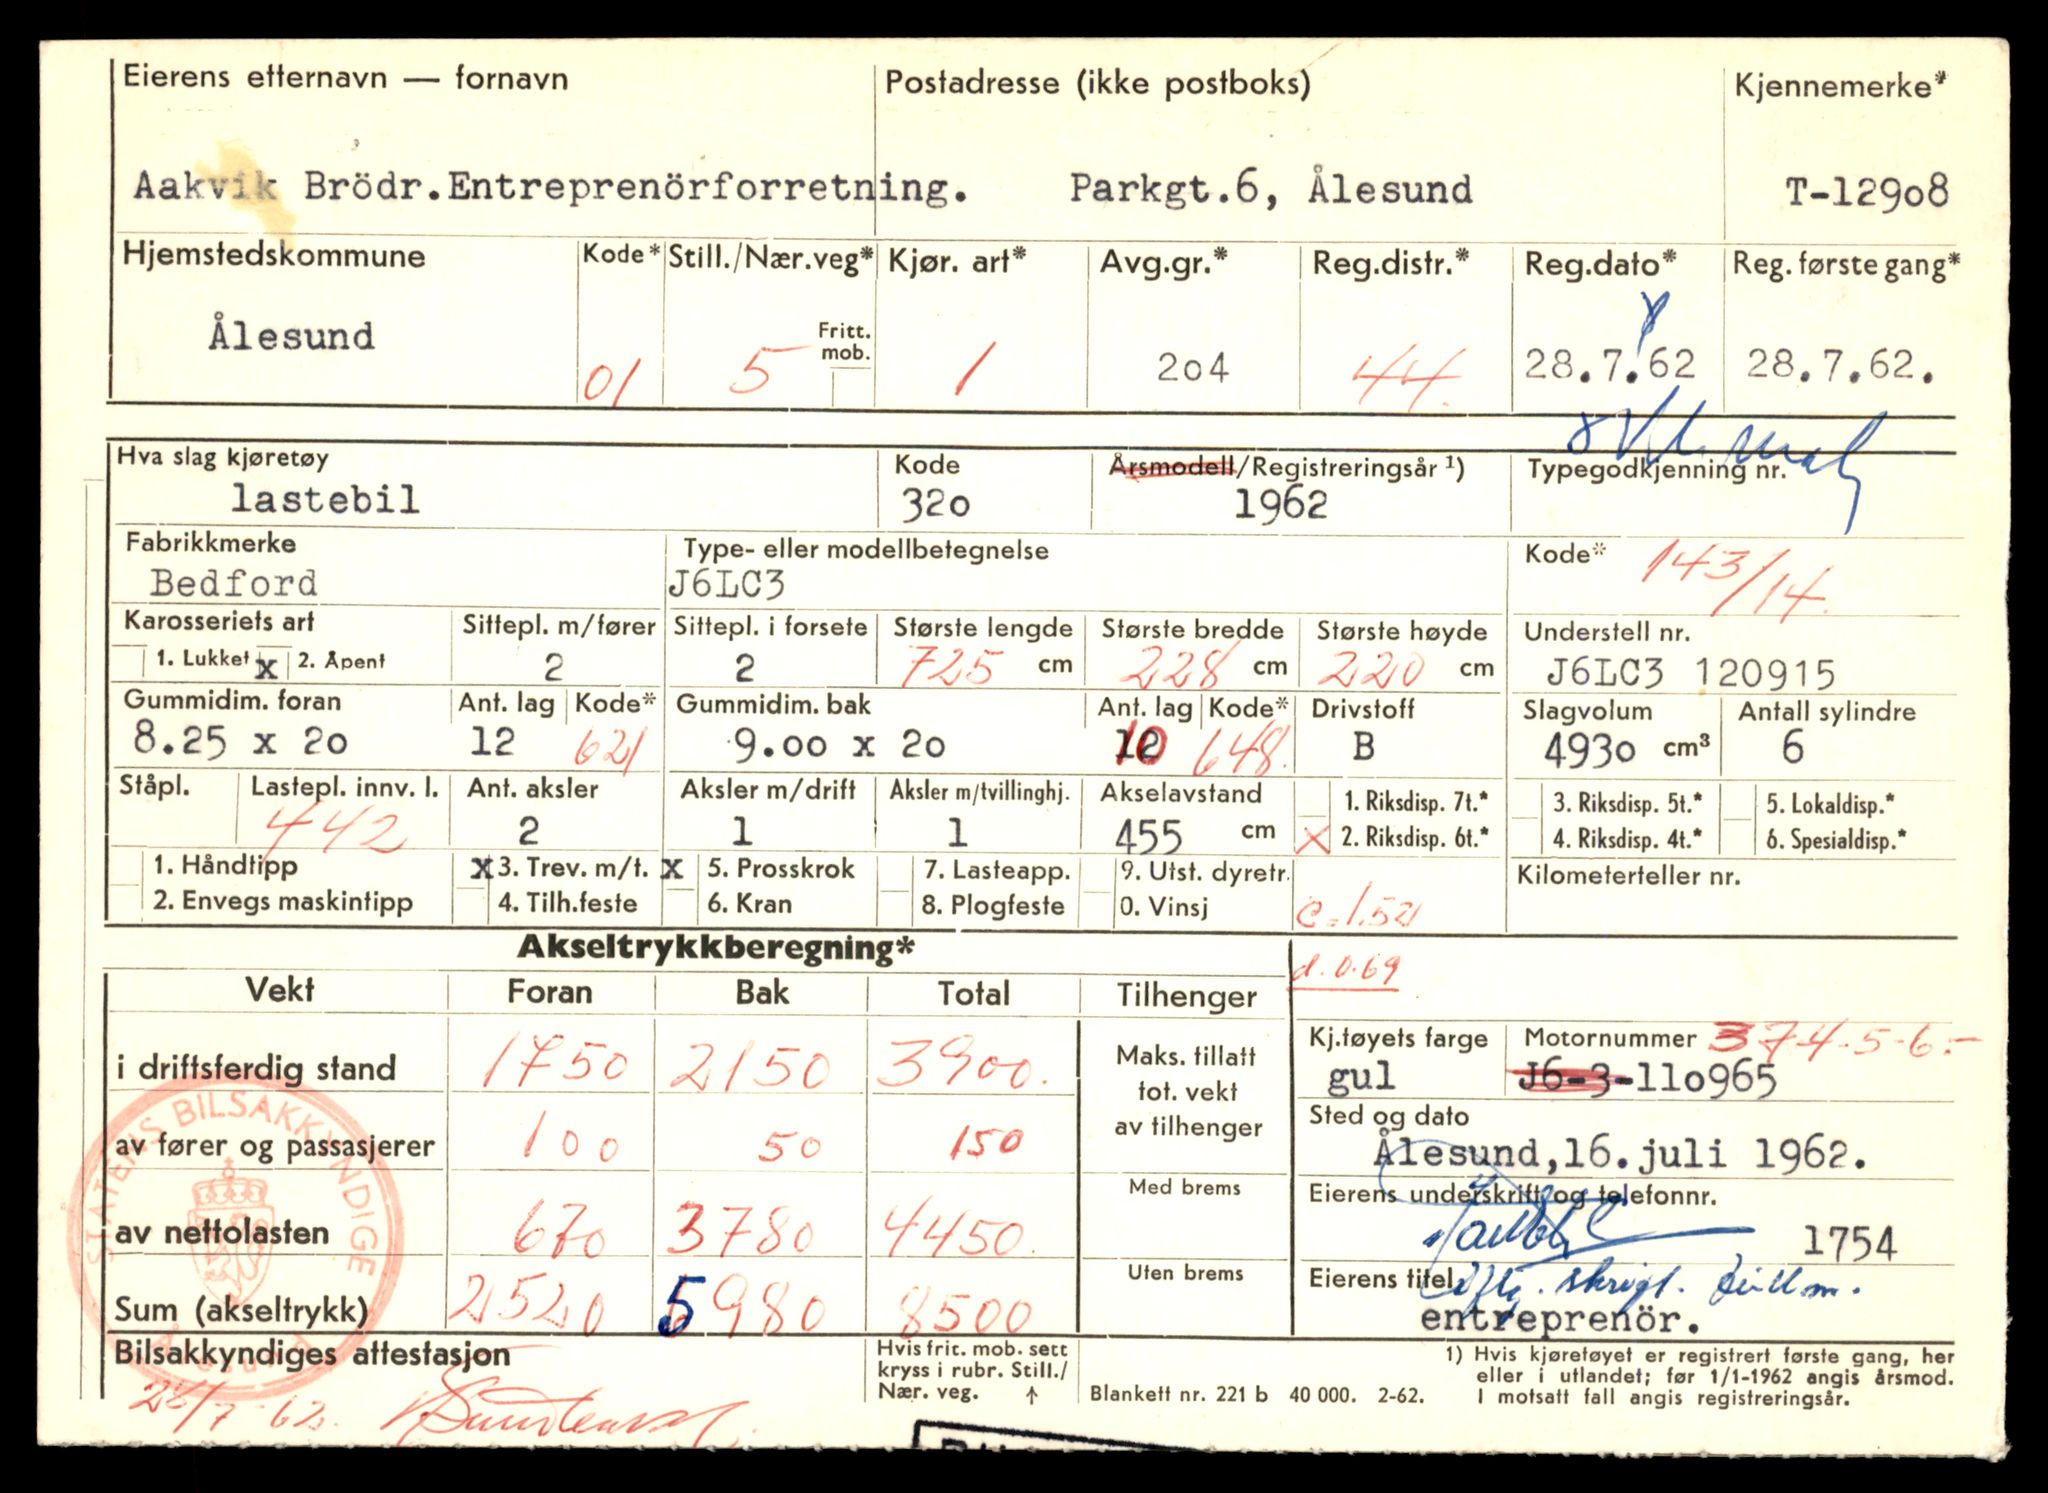 Eierens etternavn — fornavn Postadresse (ikke postboks) Kjennemerke*
Aakvik Brödr.Entreprenörforretning. Parkgt.6, Ålesund T-12908
Hjemstedskommune Kode* Still./Nær.veg* Kjør. art* Avg.gr.* Reg.distr.* Reg.dato* Reg. første gang*
Fritt.
mob.
Ålesund 01 5 1 204 44. 28.7.62 28.7.62.
Hva slag kjøretøy Kode Årsmodell/Registreringsår ¹) Typegodkjenning nr.
lastebil 320 1962
Fabrikkmerke Type- eller modellbetegnelse Kode* 143/14.
Bedford J6LC3
Karosseriets art Sittepl. m/fører Sittepl. i forsete Største lengde Største bredde Største høyde Understell nr.
1. Lukket x 2. Åpent 2 2 725 cm 228 cm 220 cm J6LC3 120915
Gummidim. foran Ant. lag Kode* Gummidim. bak Ant. lag Kode* Drivstoff Slagvolum Antall sylindre
8.25 x 20 12 621 9.00 x 20 10 648. B 4930 cm³ 6
Ståpl. Lastepl. innv. l. Ant. aksler Aksler m/drift Aksler m/tvillinghj. Akselavstand 1. Riksdisp. 7t.* 3. Riksdisp. 5t.* 5. Lokaldisp.*
442 2 1 1 455 cm X 2. Riksdisp. 6t.* 4. Riksdisp. 4t.* 6. Spesialdisp.*
1. Håndtipp x 3. Trev. m/t. x 5. Prosskrok 7. Lasteapp. 9. Utst. dyretr. Kilometerteller nr.
2. Envegs maskintipp 4. Tilh.feste 6. Kran 8. Plogfeste 0. Vinsj c. 1.52
Akseltrykkberegning* d. 0.69
Vekt Foran Bak Total Tilhenger
i driftsferdig stand 1750 2150 3900.
Maks. tillatt
tot. vekt
av tilhenger
Kj.tøyets farge Motornummer 374-5-6.-
gul J6-3-110965
Sted og dato
av fører og passasjerer 100 50 150
Ålesund,16.juli 1962.
Med brems Eierens underskrift og telefonnr.
av nettolasten 670 3780 4450. 1754
Uten brems Eierens titel
Sum (akseltrykk) 2520 5980 8500
entreprenör.
STATENS BILSAKKYNDIGE
Ålesund
Bilsakkyndiges attestasjon
28/7-62.
Hvis frit. mob. sett
kryss i rubr. Still./
Nær. veg. ↑
Blankett nr. 221 b 40 000. 2-62.
1) Hvis kjøretøyet er registrert første gang, her
eller i utlandet; før 1/1-1962 angis årsmod.
I motsatt fall angis registreringsår.